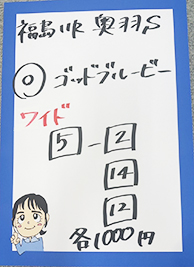 福島11R 奥羽S
◎ ゴッドブルービー
ワイド
5-2
14
12
各1000円